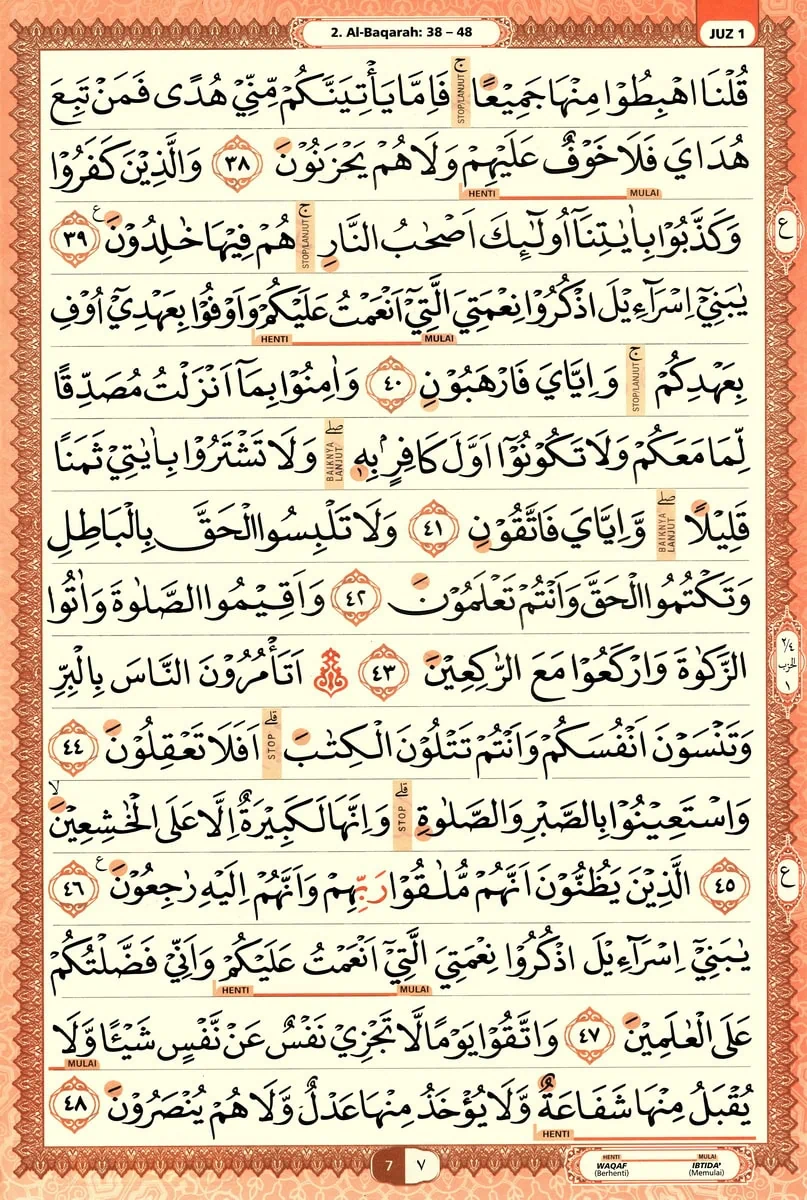 2. Al-Baqarah: 38 – 48
JUZ 1
قُلْنَا اهْبِطُوْا مِنْهَا جَمِيْعًا ۚ فَاِمَّا يَأْتِيَنَّكُمْ مِّنِّيْ هُدًى فَمَنْ تَبِعَ
STOP/LANJUT
هُدَايَ فَلَا خَوْفٌ عَلَيْهِمْ وَلَا هُمْ يَحْزَنُوْنَ ٣٨ وَالَّذِيْنَ كَفَرُوْا
HENTI MULAI
وَكَذَّبُوْا بِاٰيٰتِنَآ اُولٰۤىِٕكَ اَصْحٰبُ النَّارِ ۚ هُمْ فِيْهَا خٰلِدُوْنَ ࣖ ٣٩
STOP/LANJUT
ع
يٰبَنِيْٓ اِسْرَاۤءِيْلَ اذْكُرُوْا نِعْمَتِيَ الَّتِيْٓ اَنْعَمْتُ عَلَيْكُمْ وَاَوْفُوْا بِعَهْدِيْٓ اُوْفِ
HENTI MULAI
بِعَهْدِكُمْ ۚ وَاِيَّايَ فَارْهَبُوْنِ ٤٠ وَاٰمِنُوْا بِمَآ اَنْزَلْتُ مُصَدِّقًا
STOP/LANJUT
لِّمَا مَعَكُمْ وَلَا تَكُوْنُوْٓا اَوَّلَ كَافِرٍۢ بِهٖ ۖ وَلَا تَشْتَرُوْا بِاٰيٰتِيْ ثَمَنًا
BAIKNYA LANJUT
قَلِيْلًا ۖ وَّاِيَّايَ فَاتَّقُوْنِ ٤١ وَلَا تَلْبِسُوا الْحَقَّ بِالْبَاطِلِ
BAIKNYA LANJUT
وَتَكْتُمُوا الْحَقَّ وَاَنْتُمْ تَعْلَمُوْنَ ٤٢ وَاَقِيْمُوا الصَّلٰوةَ وَاٰتُوا
٢/٤
الحزب
١
الزَّكٰوةَ وَارْكَعُوْا مَعَ الرّٰكِعِيْنَ ٤٣ ۞ اَتَأْمُرُوْنَ النَّاسَ بِالْبِرِّ
وَتَنْسَوْنَ اَنْفُسَكُمْ وَاَنْتُمْ تَتْلُوْنَ الْكِتٰبَ ۗ اَفَلَا تَعْقِلُوْنَ ٤٤
STOP
وَاسْتَعِيْنُوْا بِالصَّبْرِ وَالصَّلٰوةِ ۗ وَاِنَّهَا لَكَبِيْرَةٌ اِلَّا عَلَى الْخٰشِعِيْنَ ۙ
STOP
٤٥ الَّذِيْنَ يَظُنُّوْنَ اَنَّهُمْ مُّلٰقُوْا رَبِّهِمْ وَاَنَّهُمْ اِلَيْهِ رٰجِعُوْنَ ࣖ ٤٦
ع
يٰبَنِيْٓ اِسْرَاۤءِيْلَ اذْكُرُوْا نِعْمَتِيَ الَّتِيْٓ اَنْعَمْتُ عَلَيْكُمْ وَاَنِّيْ فَضَّلْتُكُمْ
HENTI MULAI
عَلَى الْعٰلَمِيْنَ ٤٧ وَاتَّقُوْا يَوْمًا لَّا تَجْزِيْ نَفْسٌ عَنْ نَّفْسٍ شَيْـًٔا وَّلَا
MULAI
يُقْبَلُ مِنْهَا شَفَاعَةٌ وَّلَا يُؤْخَذُ مِنْهَا عَدْلٌ وَّلَا هُمْ يُنْصَرُوْنَ ٤٨
HENTI
7 ٧
HENTI MULAI
WAQAF IBTIDA'
(Berhenti) (Memulai)